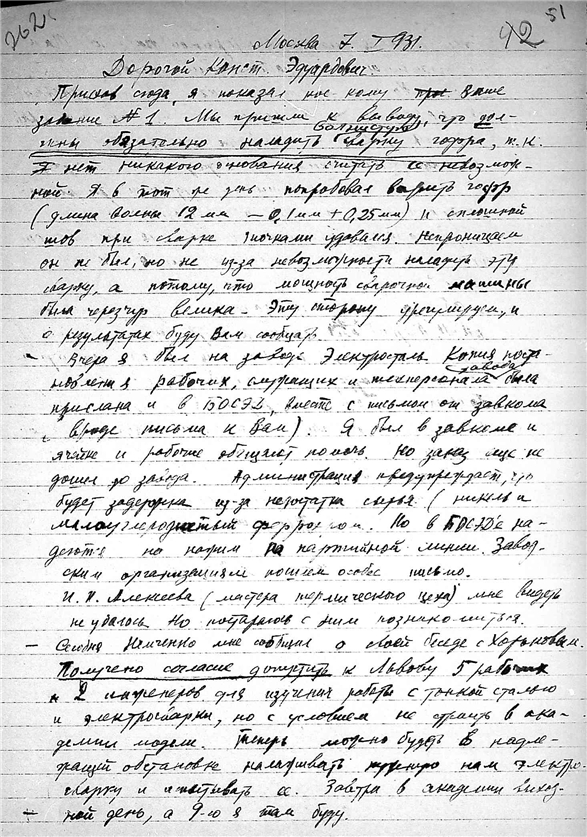 262
51
42
Москва 7. I 931.
Дорогой Конст. Эдуардович.
Приехав сюда, я показал кое кому Ваше
задание № 1. Мы пришли к выводу, что дол-
волнистую
жны обязательно наладить сварку гофра, т.к.
нет никакого основания считать ее невозмож-
ной. Я в тот же день попробовал варить гофр
(длина волны 12 мм — 0,1мм + 0,25мм) и сплошной
шов при сварке точками удовался. Непроницаем
он не был, но не из-за невозможности наладить эту
сварку, а потому, что мощность сварочной машины
была черезчур велика. Эту сторону урегулируем, и
о результатах буду Вам сообщать.
— Вчера я был на заводе Электросталь. Копия поста-
завода
новления рабочих, служащих и техперсонала была
прислана и в БОСЭД, вместе с письмом от завкома
(вроде письма к Вам). Я был в завкоме и
ячейке и рабочие обещают помочь. Но заказ еще не
дошел до завода. Администрация предупреждает, что
будет задержка из-за недостатка сырья (никель и
малоуглеродистый феррохром. Но в БОСЭД'е на-
деются по нажим по партийной линии. Завод-
ским организациям пошлем особое письмо.
И. И. Алексеева (мастера термического цеха) мне видеть
не удалось. Но постараюсь с ним познакомиться.
— Сегодня Немченко мне сообщил о своей беседе с Хорьковым.
Получено согласие допустить к Львову 5 рабочих
и 2 инженеров для изучения работы с тонкой сталью
и электросварки, но с условием не строить в ака-
демии модели. Теперь можно будет в надле-
жащей обстановке налаживать нам электро-
сварку и испытывать ее. Завтра в академии выход-
— ной день, а 9-го я там буду.